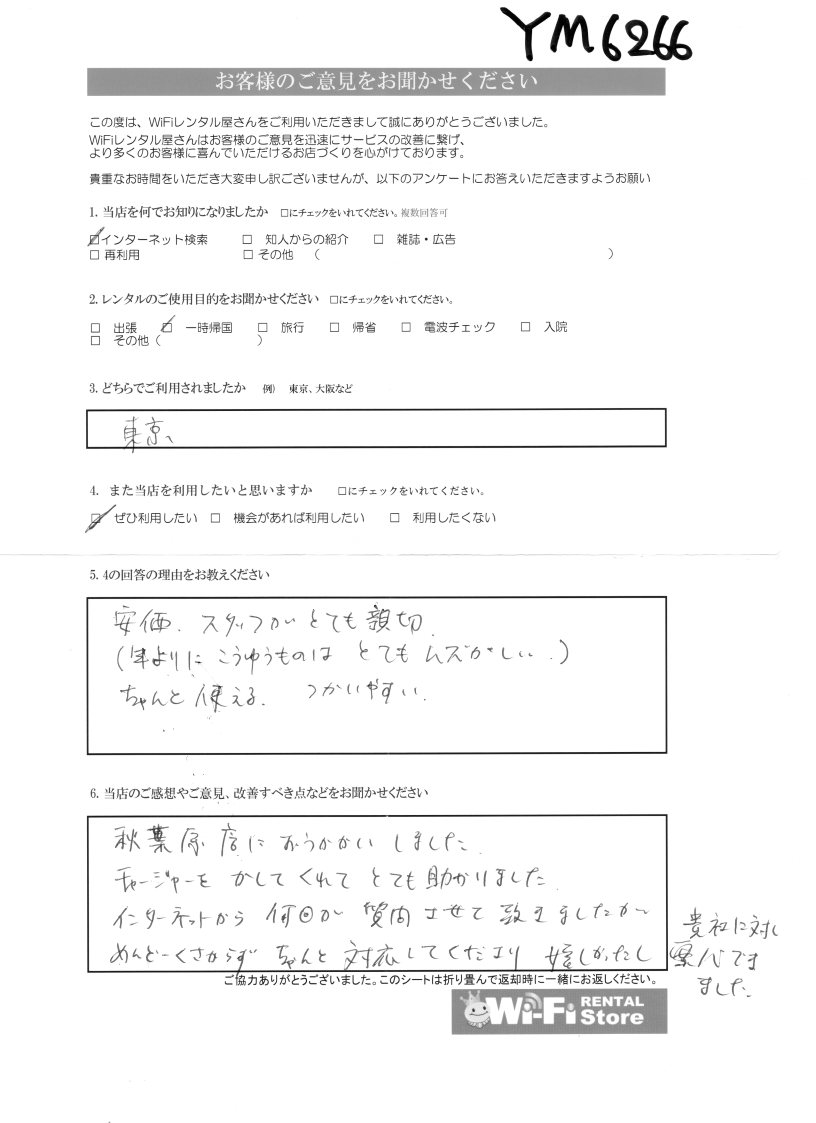 YM6266
お客様のご意見をお聞かせください
この度は、WiFiレンタル屋さんをご利用いただきまして誠にありがとうございました。
WiFiレンタル屋さんはお客様のご意見を迅速にサービスの改善に繋げ、
より多くのお客様に喜んでいただけるお店づくりを心がけております。
貴重なお時間をいただき大変申し訳ございませんが、以下のアンケートにお答えいただきますようお願い
1. 当店を何でお知りになりましたか □にチェックをいれてください。複数回答可
☑インターネット検索 □ 知人からの紹介 □ 雑誌・広告
□ 再利用 □ その他 ( )
2. レンタルのご使用目的をお聞かせください □にチェックをいれてください。
□ 出張 ☑ 一時帰国 □ 旅行 □ 帰省 □ 電波チェック □ 入院
□ その他 ( )
3. どちらでご利用されましたか 例) 東京、大阪など
東京、
4. また当店を利用したいと思いますか □にチェックをいれてください。
☑ ぜひ利用したい □ 機会があれば利用したい □ 利用したくない
5. 4の回答の理由をお教えください
安価、スタッフがとても親切
(年よりに こうゆうものは とてもムズかしい..)
ちゃんと使える. つかいやすい.
6. 当店のご感想やご意見、改善すべき点などをお聞かせください
秋葉原店に おうかがい しました.
チャージャーを かして くれて とても助かりました
インターネットから 何回か 質問 させて 致きましたが
めんどーくさがらず ちゃんと 対応してくださり 嬉しかったし
貴社に対し
できました.
ご協力ありがとうございました。このシートは折り畳んで返却時に一緒にお返しください。
Wi-Fi RENTAL Store